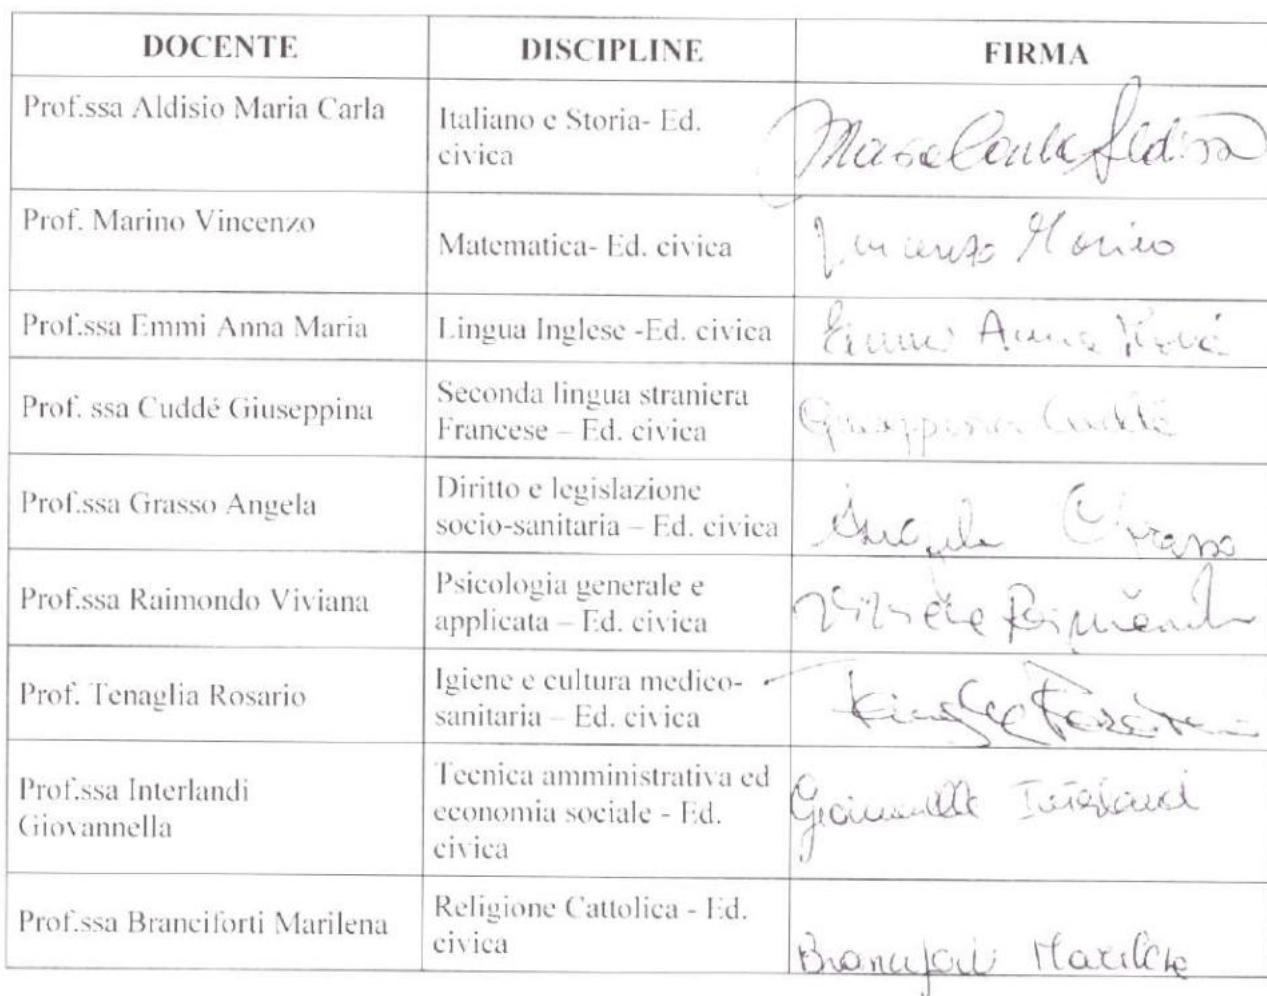 DOCENTE DISCIPLINE FIRMA
Prof.ssa Aldisio Maria Carla
Italiano e Storia- Ed.
civica
Maria Carla Aldisio
Prof. Marino Vincenzo
Matematica- Ed. civica
Vincenzo Marino
Prof.ssa Emmi Anna Maria
Lingua Inglese -Ed. civica
Emmi Anna Maria
Prof. ssa Cuddé Giuseppina
Seconda lingua straniera
Francese – Ed. civica
Giuseppina Cuddé
Prof.ssa Grasso Angela
Diritto e legislazione
socio-sanitaria – Ed. civica
Angela Grasso
Prof.ssa Raimondo Viviana
Psicologia generale e
applicata – Ed. civica
Viviana Raimondo
Prof. Tenaglia Rosario
Igiene e cultura medico-
sanitaria – Ed. civica
Tenaglia Rosario
Prof.ssa Interlandi
Giovannella
Tecnica amministrativa ed
economia sociale - Ed.
civica
Giovannella Interlandi
Prof.ssa Branciforti Marilena
Religione Cattolica - Ed.
civica
Branciforti Marilena